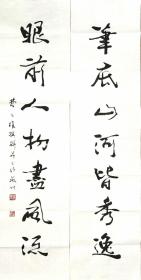 筆底山河皆秀逸
眼前人物盡風流